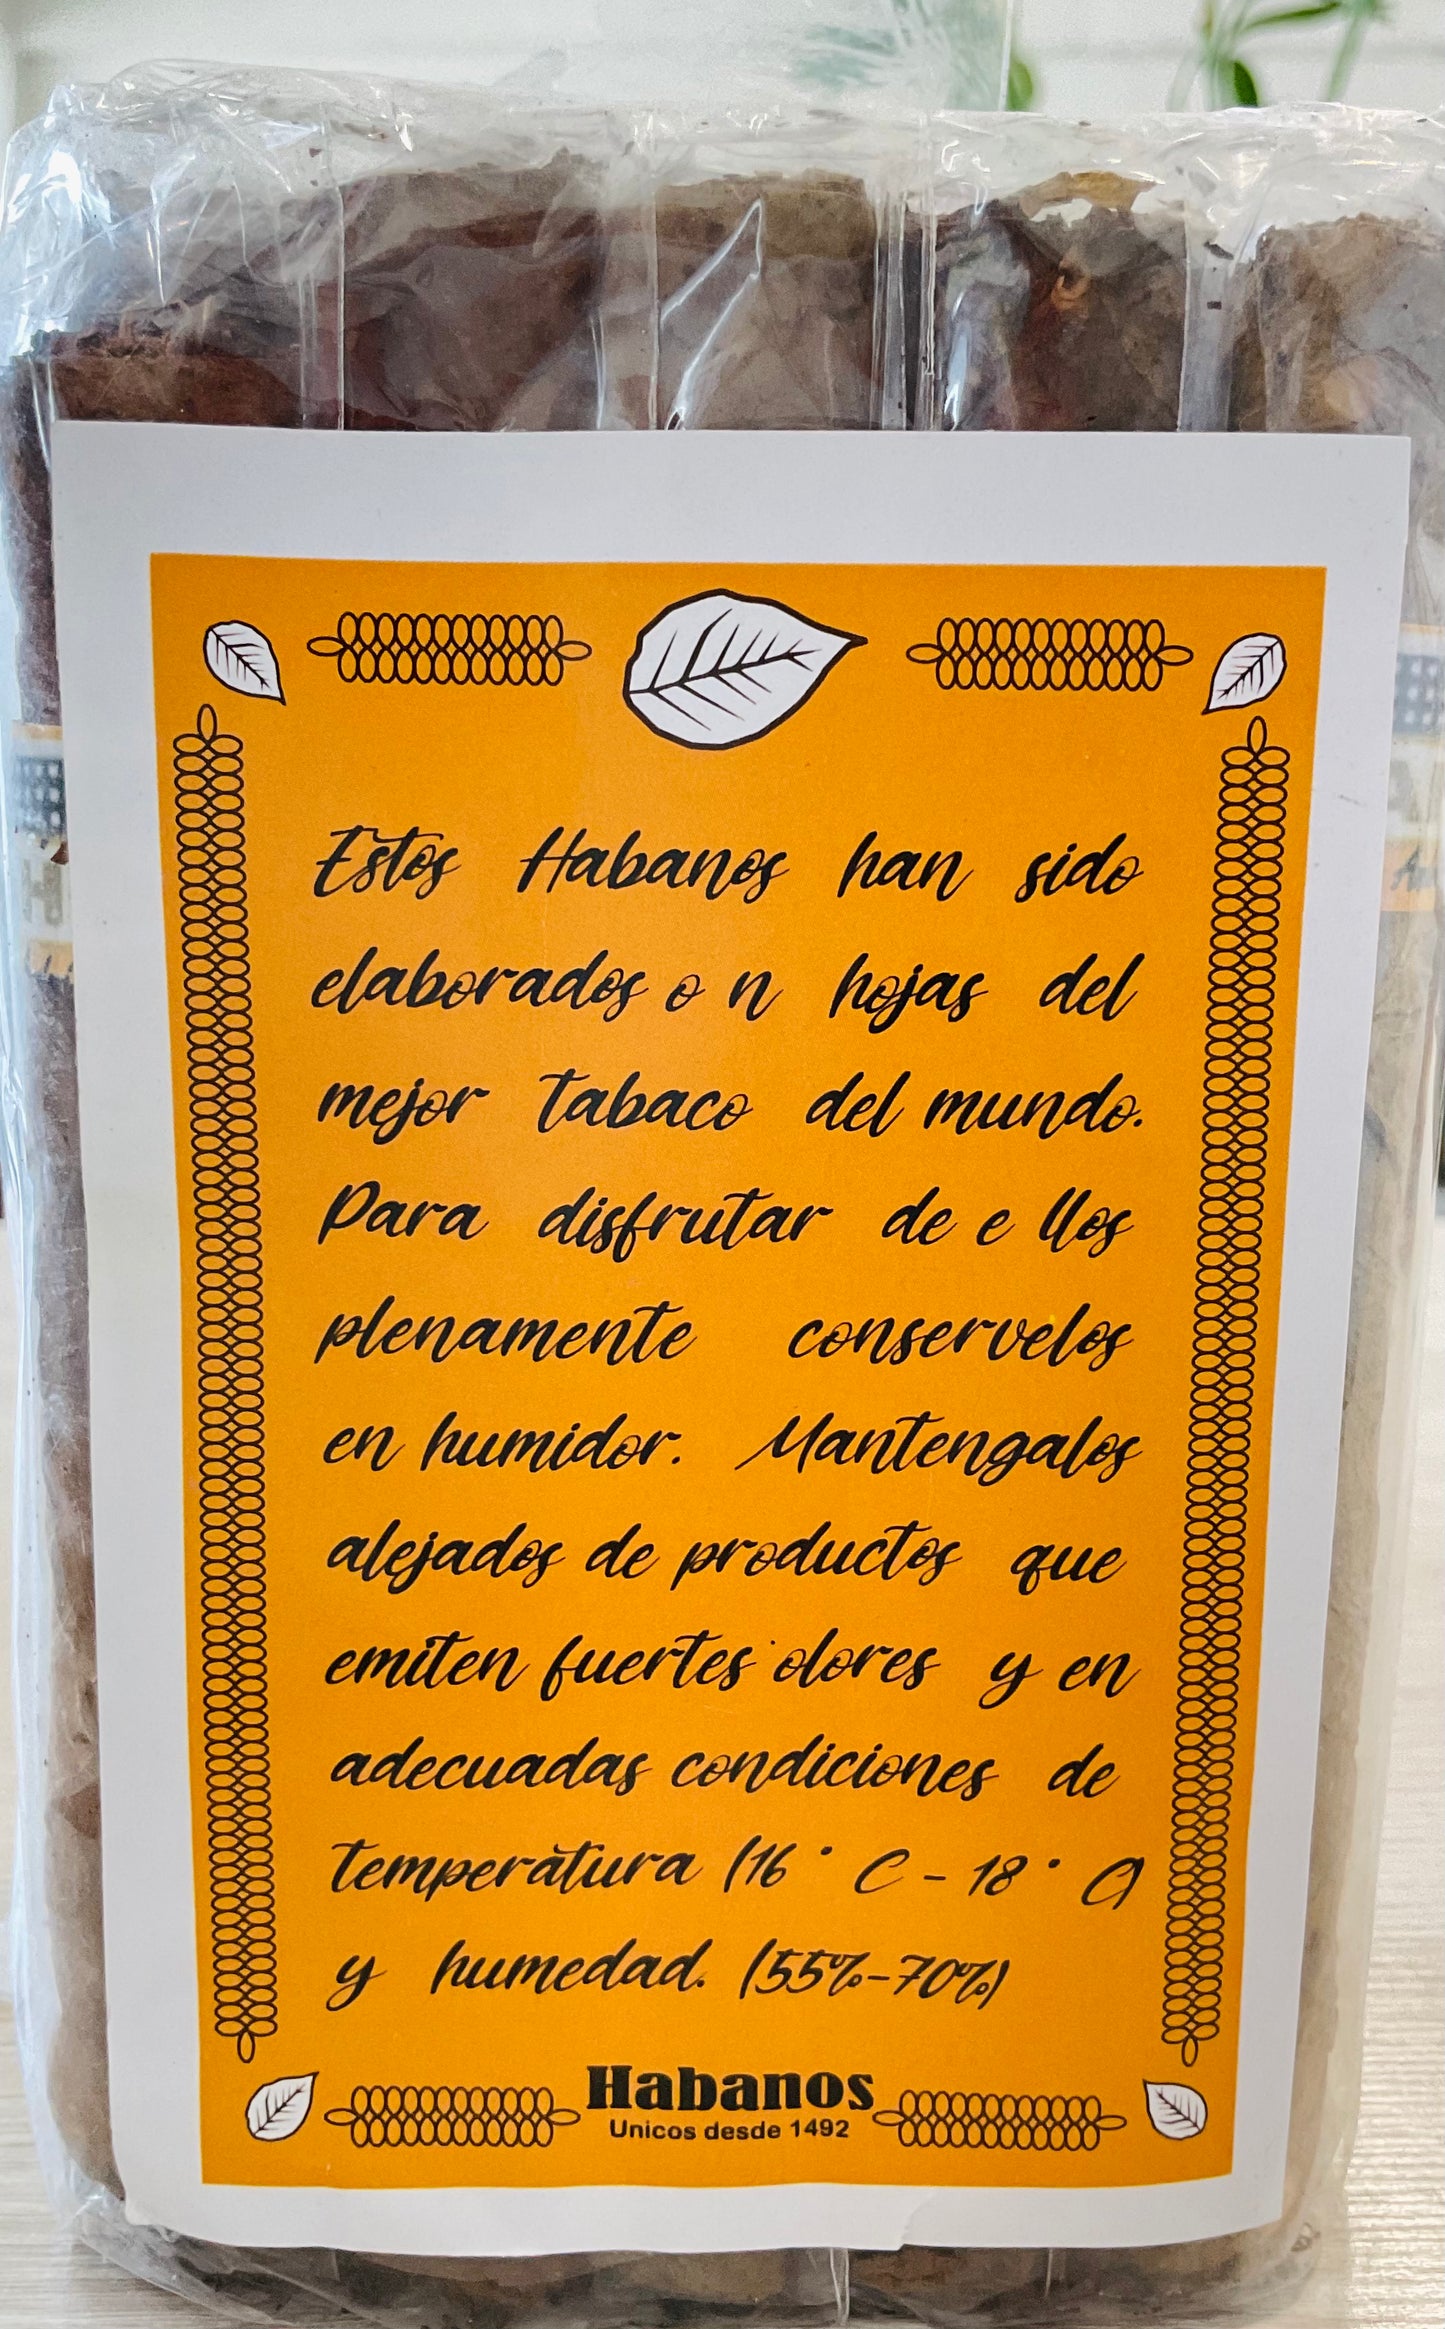 Estos Habanos han sido
elaborados o n hojas del
mejor tabaco del mundo.
Para disfrutar de e llos
plenamente conservelos
en humidor. Mantengalos
alejados de productos que
emiten fuertes olores y en
adecuadas condiciones de
temperatura (16° C - 18° C)
y humedad. (55%-70%)
Habanos
Unicos desde 1492